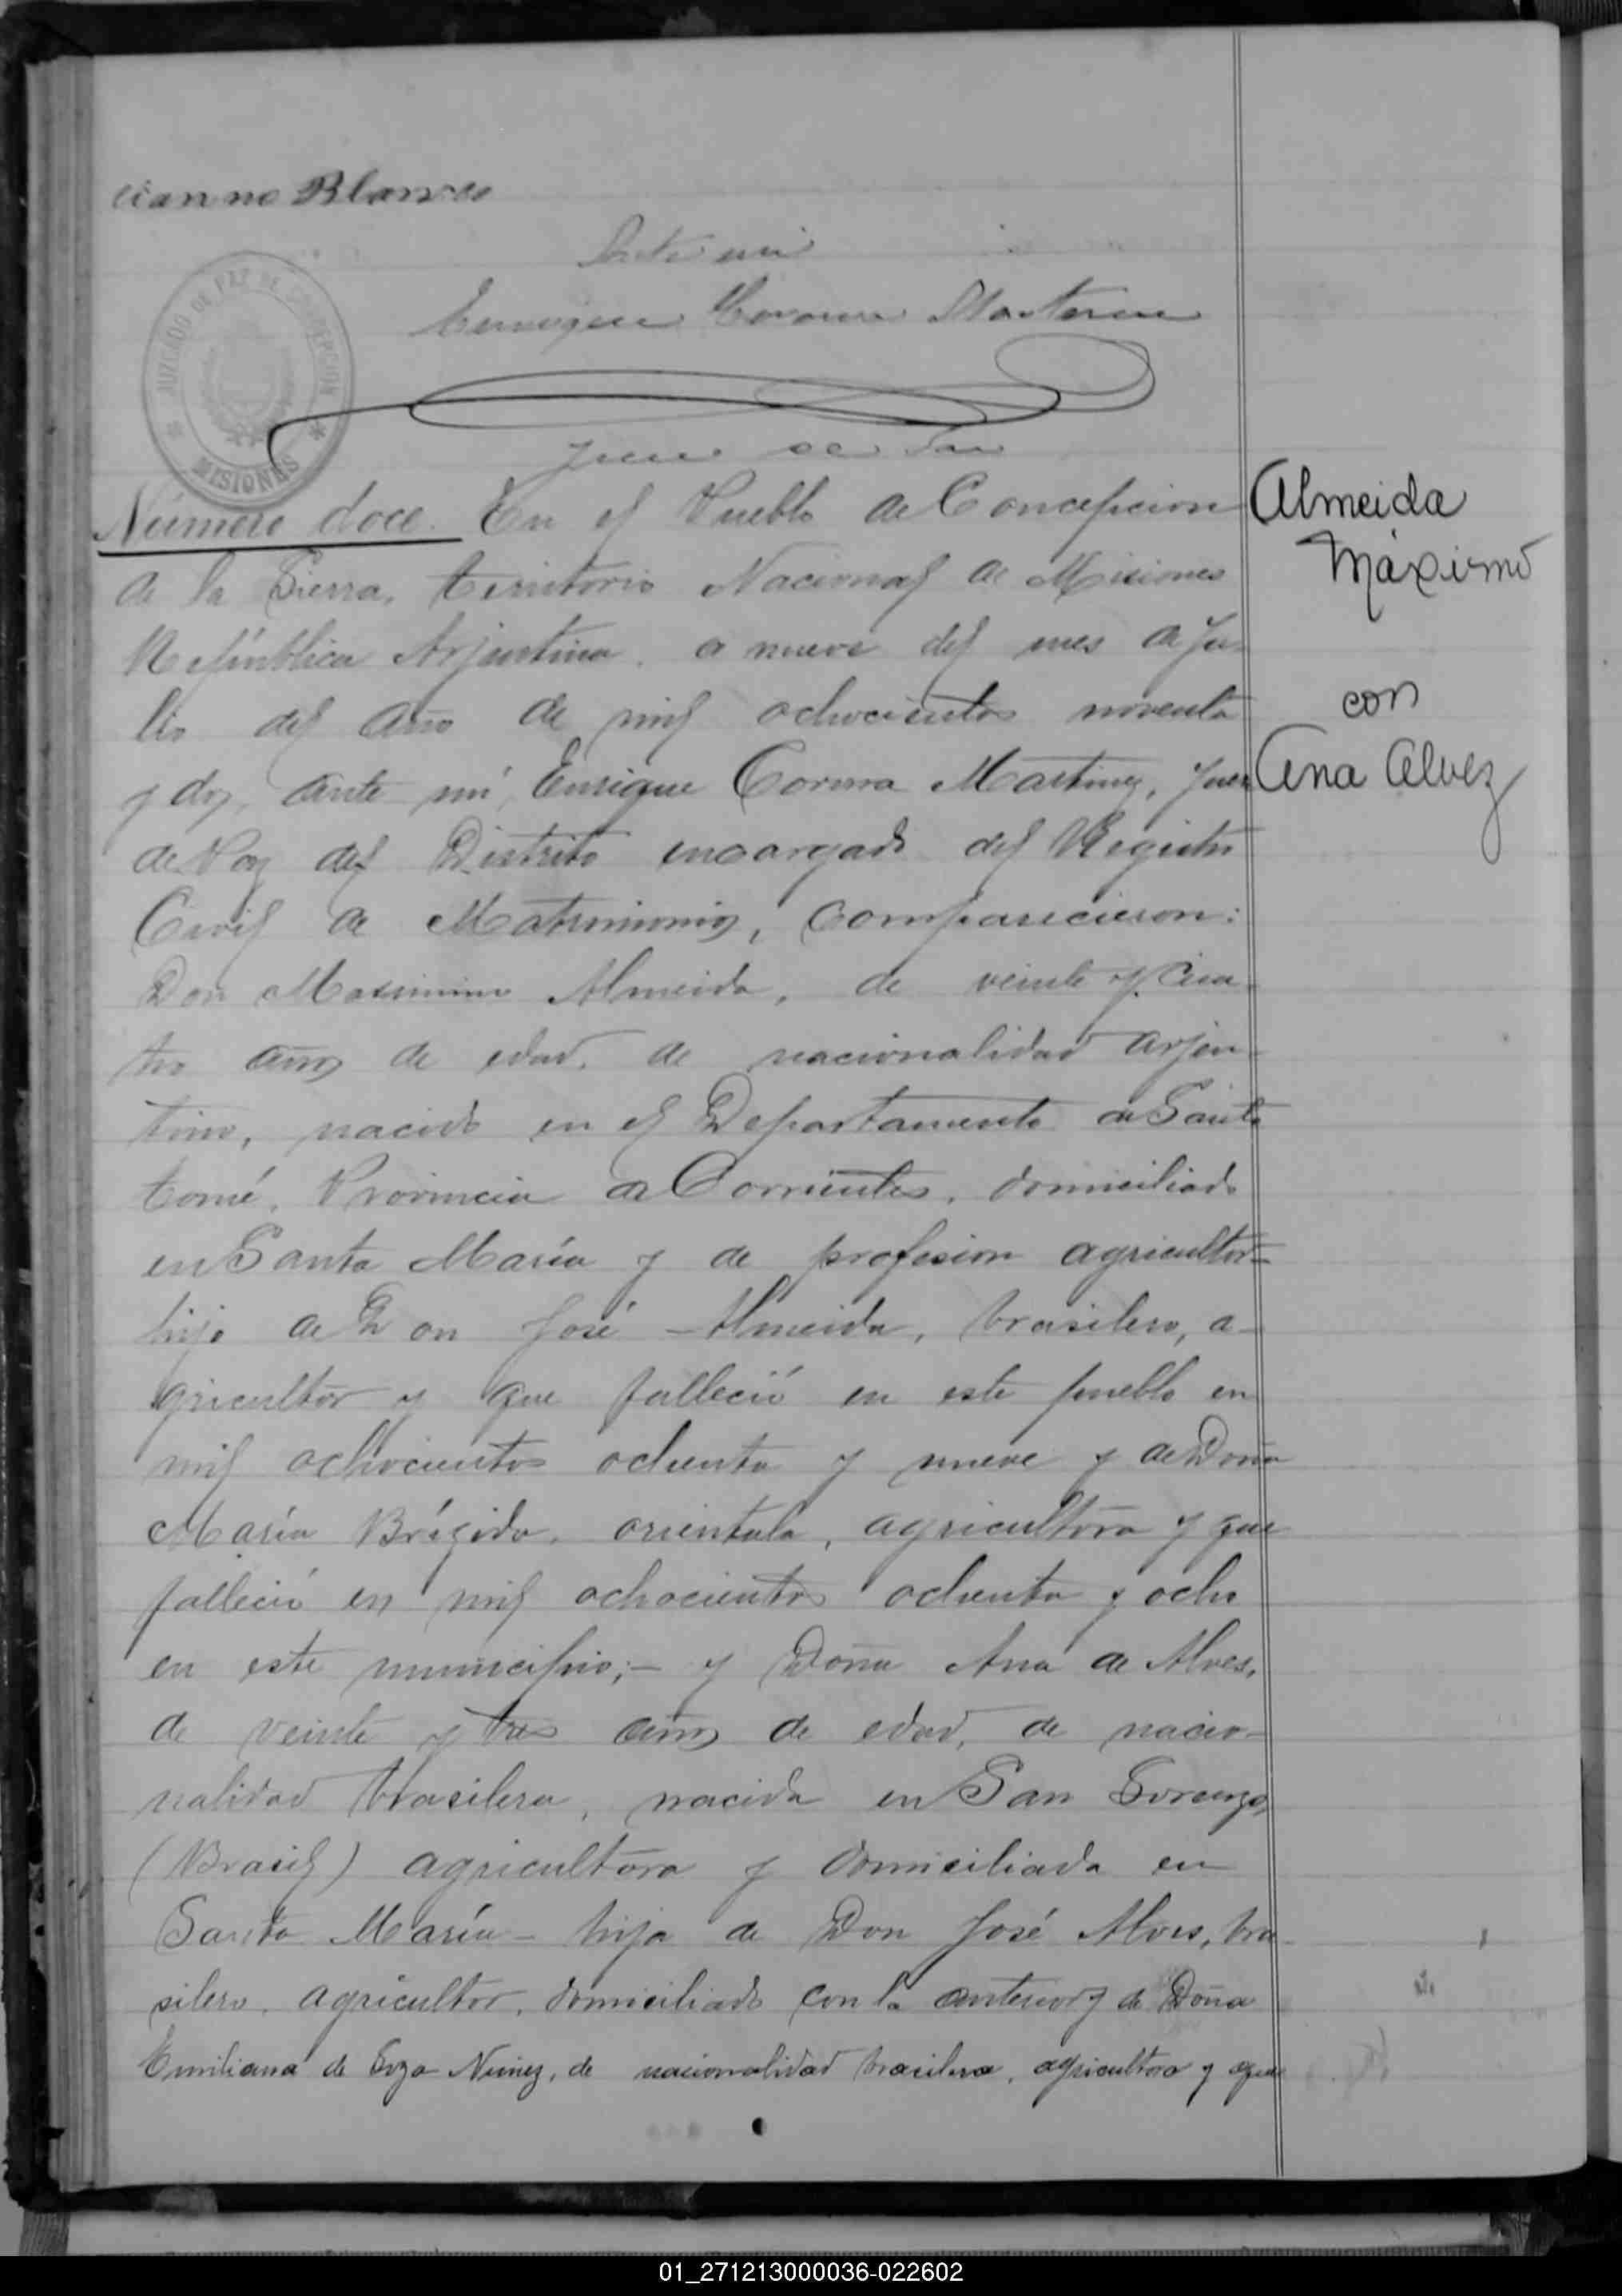 Blanco
Ante mi
Enrique Corona Martinez
JUZGADO DE PAZ DE CONCEPCION
MISIONES
Juez de Paz
Número doce. En el Pueblo de Concepcion
de la Sierra, territorio Nacional de Misiones
República Arjentina, a nueve del mes de Ju-
lio del año de mil ochocientos noventa
y dos, ante mí, Enrique Corona Martinez, Juez
de Paz del Distrito encargado del Registro
Civil de Matrimonios, comparecieron:
Don Maximino Almeida, de veinte y cua-
tro años de edad, de nacionalidad arjen-
tino, nacido en el Departamento de Santo
tomé, Provincia de Corrientes, domiciliado
en Santa María y de profesion agricultor-
hijo de Don José Almeida, brasilero, a-
gricultor y que falleció en este pueblo en
mil ochocientos ochenta y nueve y de Doña
María Brígida, orientala, agricultora y que
falleció en mil ochocientos ochenta y ocho
en este municipio;- y Doña Ana de Alves,
de veinte y tres años de edad, de nacio-
nalidad brasilera, nacida en San Lorenzo,
(Brasil) agricultora y domiciliada en
Santa María- hija de Don José Alves, bra-
silero, agricultor, domiciliado con la anterior y de Doña
Emiliana de Soza Nunez, de nacionalidad brasilera, agricultora y que
Almeida
Máximo
con
Ana Alvez
01_271213000036-022602